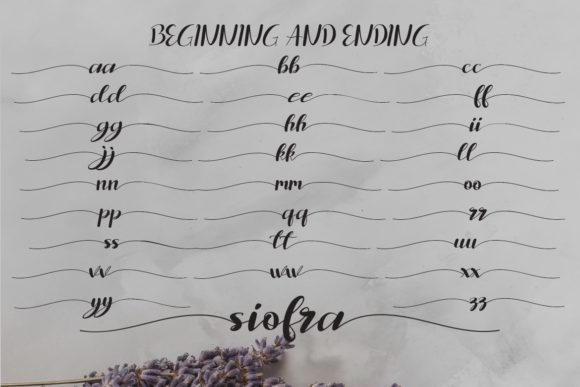 BEGINNING AND ENDING
aa bb cc
dd ee ff
gg hh ii
jj kk ll
nn mm oo
pp qq rr
ss tt uu
vv ww xx
yy zz
siofra